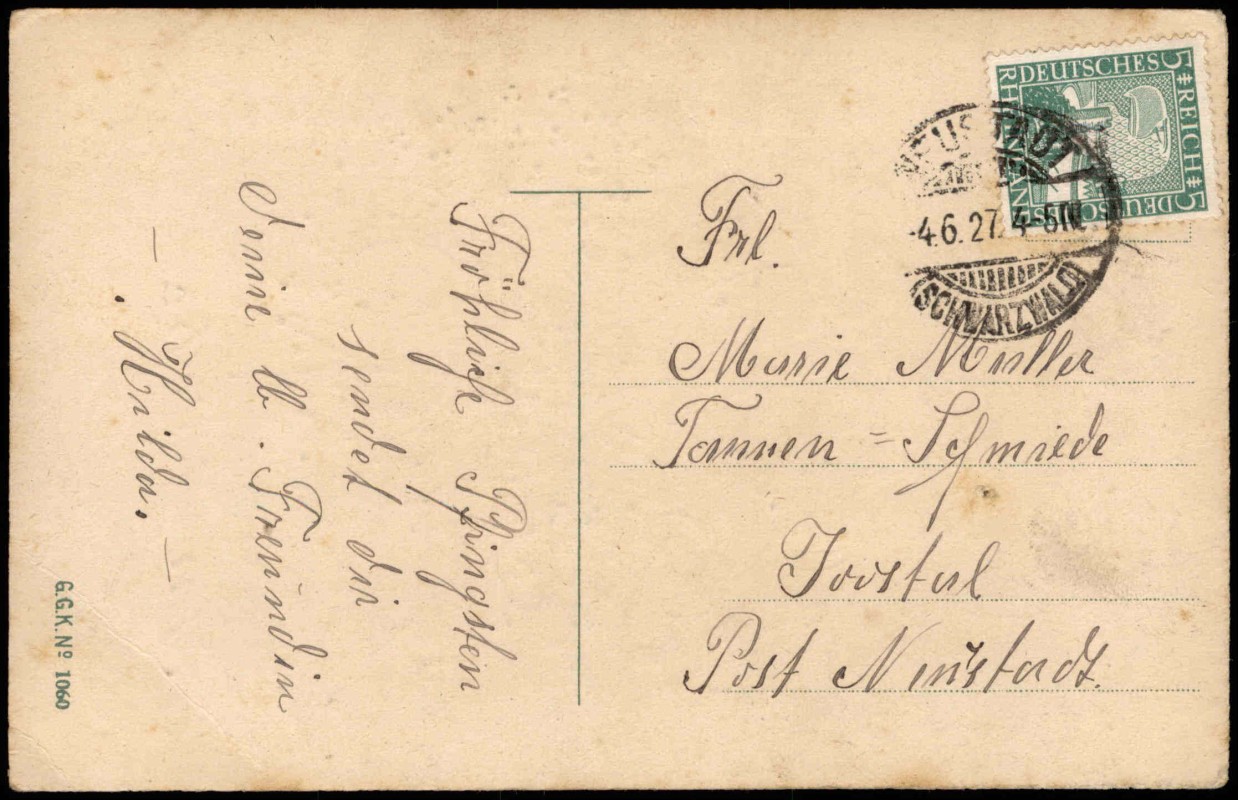 Fröhliche Pfingsten
sendet dir
Deine lb. Freundin
– Hilda. –
G.G.K. Nº 1060
DEUTSCHES
5 REICH 5
RHEINLAND
DEUTSCH
NEUSTADT
-4.6.27. 4-5 N
(SCHWARZWALD)
Frl.
Marie Muller
Tannen = Schmiede
Joostal
Post Neustadt.